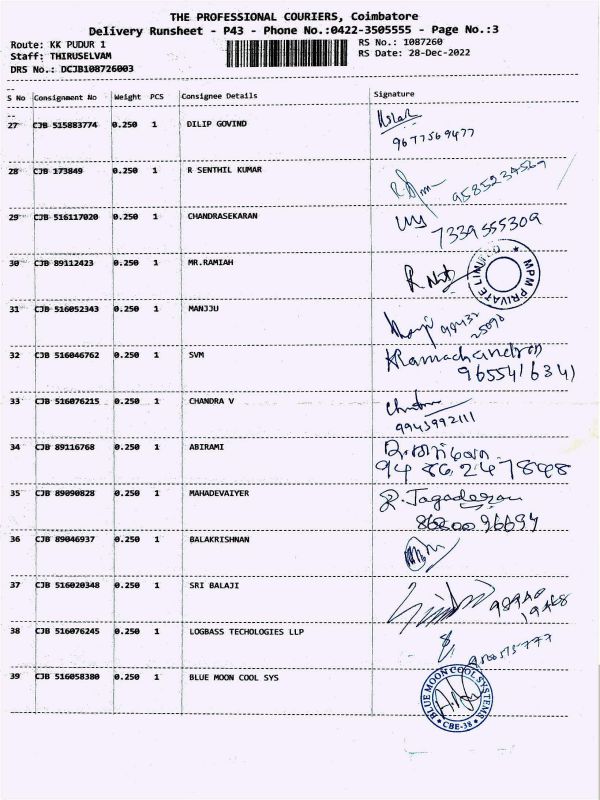 THE PROFESSIONAL COURIERS, Coimbatore
Delivery Runsheet - P43 - Phone No.:0422-3505555 - Page No.:3
Route: KK PUDUR 1 RS No.: 1087260
Staff: THIRUSELVAM RS Date: 28-Dec-2022
DRS No.: DCJB108726003
S No Consignment No Weight PCS Consignee Details Signature
27 CJB 515883774 0.250 1 DILIP GOVIND
9677569477
28 CJB 173849 0.250 1 R SENTHIL KUMAR
9585234569
29 CJB 516117020 0.250 1 CHANDRASEKARAN
7339555309
30 CJB 89112423 0.250 1 MR.RAMIAH
MPM PRIVATE LIMITED
31 CJB 516052343 0.250 1 MANJJU
32 CJB 516046762 0.250 1 SVM KRamachandran
9655416341
33 CJB 516076215 0.250 1 CHANDRA V
9943992111
34 CJB 89116768 0.250 1 ABIRAMI
9486247898
35 CJB 89090828 0.250 1 MAHADEVAIYER R. Jagadeesan
96694
36 CJB 89046937 0.250 1 BALAKRISHNAN
37 CJB 516020348 0.250 1 SRI BALAJI
38 CJB 516076245 0.250 1 LOGBASS TECHOLOGIES LLP
39 CJB 516058380 0.250 1 BLUE MOON COOL SYS
BLUE MOON COOL SYSTEMS
CBE-38